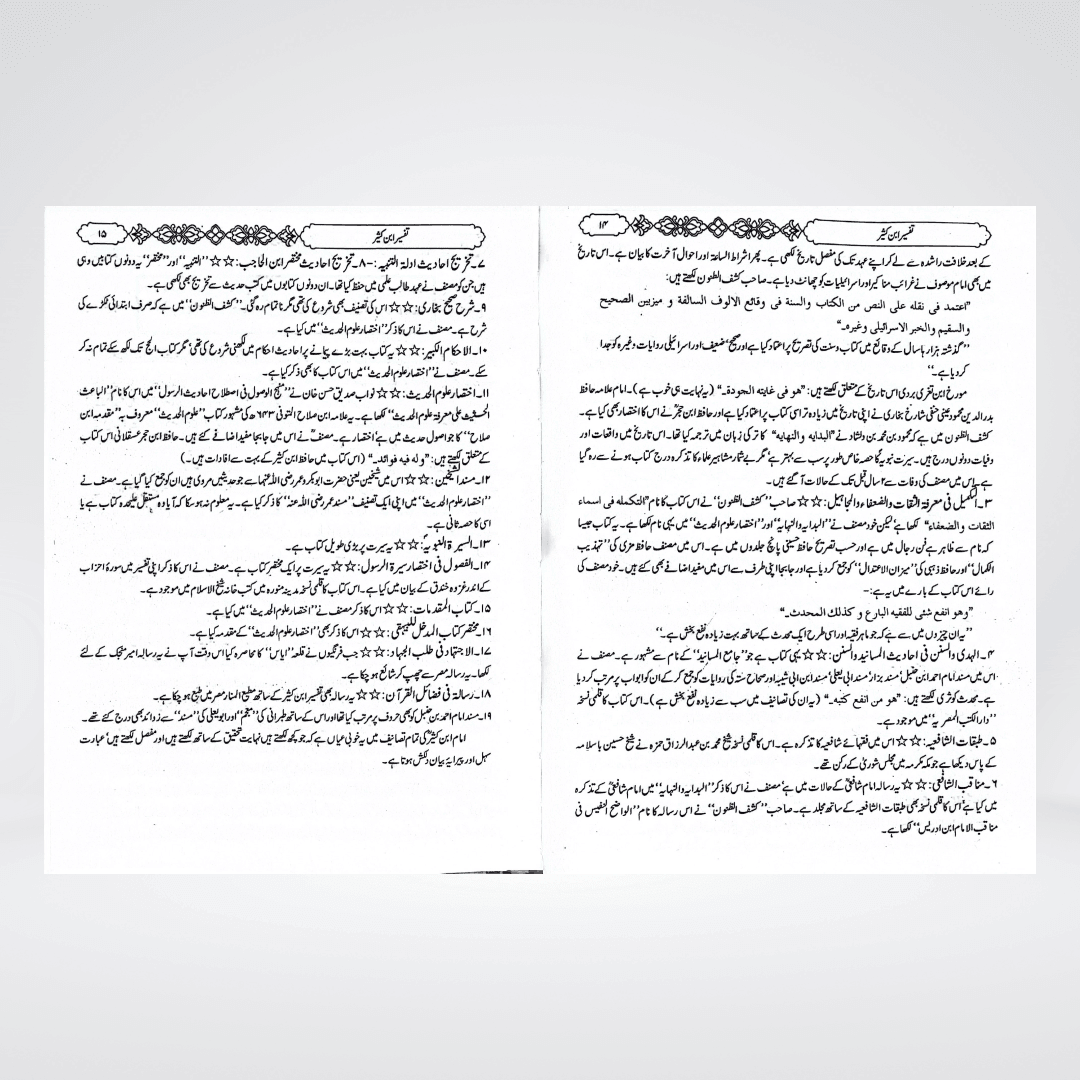 ۱۴
تفسیر ابن کثیر
کے بعد خلافت راشدہ سے لے کر اپنے عہد تک کی مفصل تاریخ لکھی ہے۔ پھر اشراط الساعۃ اور احوال آخرت کا بیان ہے۔ اس تاریخ
میں بھی امام موصوف نے غرائب مناکیر اور اسرائیلیات کو چھانٹ دیا ہے۔ صاحب کشف الظنون لکھتے ہیں:
”اعتمد فی نقله علی النص من الکتاب والسنة فی وقائع الالوف السالفة و میزبین الصحیح
والسقیم والخبر الاسرائیلی وغیره۔“
”گذشتہ ہزار ہا سال کے وقائع میں کتاب و سنت کی تصریح پر اعتماد کیا ہے اور صحیح‘ ضعیف اور اسرائیلی روایات وغیرہ کو جدا
کر دیا ہے۔“
مورخ ابن تغری بردی اس تاریخ کے متعلق لکھتے ہیں: ”هو فی غایته الجودة۔“ (یہ نہایت ہی خوب ہے)۔ امام علامہ حافظ
بدر الدین محمود عینی حنفی شارح بخاری نے اپنی تاریخ میں زیادہ تر اسی کتاب پر اعتماد کیا ہے اور حافظ ابن حجرؒ نے اس کا اختصار بھی کیا ہے۔
کشف الظنون میں ہے کہ محمود بن محمد بن دلشاد نے ”البدایه والنهایه“ کا ترکی زبان میں ترجمہ کیا تھا۔ اس تاریخ میں واقعات اور
وفیات دونوں درج ہیں۔ سیرت نبویہ کا حصہ خاص طور پر سب سے بہتر ہے‘ مگر بے شمار مشاہیر علماء کا تذکرہ درج کتاب ہونے سے رہ گیا
ہے۔ اس میں مصنف کی وفات سے ۲ سال قبل تک کے حالات آ گئے ہیں۔
۳۔ التکمیل فی معرفۃ الثقات والضعفاء والمجاہیل: ☆☆ صاحب ”کشف الظنون“ نے اس کتاب کا نام ”التکمله فی اسماء
الثقات و الضعفاء“ لکھا ہے‘ لیکن خود مصنف نے ”البدایہ والنہایہ“ اور ”اختصار علوم الحدیث“ میں یہی نام لکھا ہے۔ یہ کتاب جیسا
کہ نام سے ظاہر ہے فن رجال میں ہے اور حسب تصریح حافظ حسینی پانچ جلدوں میں ہے۔ اس میں مصنف حافظ مزی کی ”تہذیب
الکمال“ اور حافظ ذہبی کی ”میزان الاعتدال“ کو جمع کر دیا ہے اور جا بجا اپنی طرف سے اس میں مفید اضافے بھی کئے ہیں۔ خود مصنف کی
رائے اس کتاب کے بارے میں یہ ہے:۔
”وهو انفع شئی للفقیه البارع و کذلك المحدث۔“
”یہ ان چیزوں میں سے ہے کہ جو ماہر فقیہ اور اسی طرح ایک محدث کے ساتھ بہت زیادہ نفع بخش ہے۔“
۴۔ الهدی والسنن فی احادیث المسانید والسنن: ☆☆ یہی کتاب ہے جو ”جامع المسانید“ کے نام سے مشہور ہے۔ مصنف نے
اس میں مسند امام احمد ابن حنبل‘ مسند بزار‘ مسند ابی یعلی‘ مسند ابن ابی شیبہ اور صحاح ستہ کی روایات کو جمع کر کے ان کو ابواب پر مرتب کر دیا
ہے۔ محدث کوثری لکھتے ہیں: ”هو من انفع کتبه۔“ (یہ ان کی تصانیف میں سب سے زیادہ نفع بخش ہے)۔ اس کتاب کا قلمی نسخہ
”دار الکتب المصریہ“ میں موجود ہے۔
۵۔ طبقات الشافعیہ: ☆☆ اس میں فقہائے شافعیہ کا تذکرہ ہے۔ اس کا قلمی نسخہ شیخ محمد بن عبدالرزاق حمزہ نے شیخ حسین باسلامہ
کے پاس دیکھا ہے جو مکہ مکرمہ میں مجلس شوریٰ کے رکن تھے۔
۶۔ مناقب الشافعی: ☆☆ یہ رسالہ امام شافعیؒ کے حالات میں ہے‘ مصنف نے اس کا ذکر ”البدایہ والنہایہ“ میں امام شافعیؒ کے تذکرہ
میں کیا ہے‘ اس کا قلمی نسخہ بھی طبقات الشافعیہ کے ساتھ مجلد ہے۔ صاحب ”کشف الظنون“ نے اس رسالہ کا نام ”الواضح النفیس فی
مناقب الامام ابن ادریس“ لکھا ہے۔
۱۵
تفسیر ابن کثیر
۷۔ تخریج احادیث ادلۃ التنبیہ:۔ ۸۔ تخریج احادیث مختصر ابن الحاجب: ☆☆ ”التنبیہ“ اور ”مختصر“ یہ دونوں کتابیں وہی
ہیں جن کو مصنف نے عہد طالب علمی میں حفظ کیا تھا۔ ان دونوں کتابوں میں کتب حدیث سے تخریج بھی لکھی ہے۔
۹۔ شرح صحیح بخاری: ☆☆ اس کی تصنیف بھی شروع کی تھی مگر ناتمام رہ گئی۔ ”کشف الظنون“ میں ہے کہ صرف ابتدائی ٹکڑے کی
شرح ہے۔ مصنف نے اس کا ذکر ”اختصار علوم الحدیث“ میں کیا ہے۔
۱۰۔ الاحکام الکبیر: ☆☆ یہ کتاب بہت بڑے پیمانے پر احادیث احکام میں لکھنی شروع کی تھی‘ مگر کتاب الحج تک لکھ سکے تمام نہ کر
سکے۔ مصنف نے ”اختصار علوم الحدیث“ میں اس کتاب کا بھی ذکر کیا ہے۔
۱۱۔ اختصار علوم الحدیث: ☆☆ نواب صدیق حسن خان نے ”منہج الوصول فی اصطلاح احادیث الرسول“ میں اس کا نام ”الباعث
الحثیث علی معرفۃ علوم الحدیث“ لکھا ہے۔ یہ علامہ ابن صلاح المتوفی ۶۴۳ھ کی مشہور کتاب ”علوم الحدیث“ معروف بہ ”مقدمہ ابن
صلاح“ کا جو اصول حدیث میں ہے‘ اختصار ہے۔ مصنفؒ نے اس میں جا بجا مفید اضافے کئے ہیں۔ حافظ ابن حجر عسقلانی اس کتاب
کے متعلق لکھتے ہیں: ”وله فیه فوائد۔“ (اس کتاب میں حافظ ابن کثیر کے بہت سے افادات ہیں۔)
۱۲۔ مسند الشیخین: ☆☆ اس میں شیخین یعنی حضرت ابوبکر و عمر رضی اللہ عنہما سے جو حدیثیں مروی ہیں ان کو جمع کیا گیا ہے۔ مصنف نے
”اختصار علوم الحدیث“ میں اپنی ایک تصنیف ”مسند عمر رضی اللہ عنہ“ کا ذکر کیا ہے۔ یہ معلوم نہ ہو سکا کہ آیا وہ مستقل علیحدہ کتاب ہے یا
اسی کا حصہ ثانی ہے۔
۱۳۔ السیرۃ النبویہ: ☆☆ یہ سیرت پر بڑی طویل کتاب ہے۔
۱۴۔ الفصول فی اختصار سیرۃ الرسول: ☆☆ یہ سیرت پر ایک مختصر کتاب ہے۔ مصنف نے اس کا ذکر اپنی تفسیر میں سورۂ احزاب
کے اندر غزوہ خندق کے بیان میں کیا ہے۔ اس کتاب کا قلمی نسخہ مدینہ منورہ میں کتب خانہ شیخ الاسلام میں موجود ہے۔
۱۵۔ کتاب المقدمات: ☆☆ اس کا ذکر مصنف نے ”اختصار علوم الحدیث“ میں کیا ہے۔
۱۶۔ مختصر کتاب المدخل للبیہقی: ☆☆ اس کا ذکر بھی ”اختصار علوم الحدیث“ کے مقدمہ کیا ہے۔
۱۷۔ الاجتہاد فی طلب الجہاد: ☆☆ جب فرنگیوں نے قلعہ ”ایاس“ کا محاصرہ کیا اس وقت آپ نے یہ رسالہ امیر منجک کے لئے
لکھا۔ یہ رسالہ مصر سے چھپ کر شائع ہو چکا ہے۔
۱۸۔ رسالۃ فی فضائل القرآن: ☆☆ یہ رسالہ بھی تفسیر ابن کثیر کے ساتھ مطبع المنار مصر میں طبع ہو چکا ہے۔
۱۹۔ مسند امام احمد بن حنبل کو بھی حروف پر مرتب کیا تھا اور اس کے ساتھ طبرانی کی ”معجم“ اور ابو یعلی کی ”مسند“ سے زوائد بھی درج کئے تھے۔
امام ابن کثیرؒ کی تمام تصانیف میں یہ خوبی عیاں ہے کہ جو کچھ لکھتے ہیں نہایت تحقیق کے ساتھ لکھتے ہیں اور مفصل لکھتے ہیں‘ عبارت
سہل اور پیرایۂ بیان دلکش ہوتا ہے۔